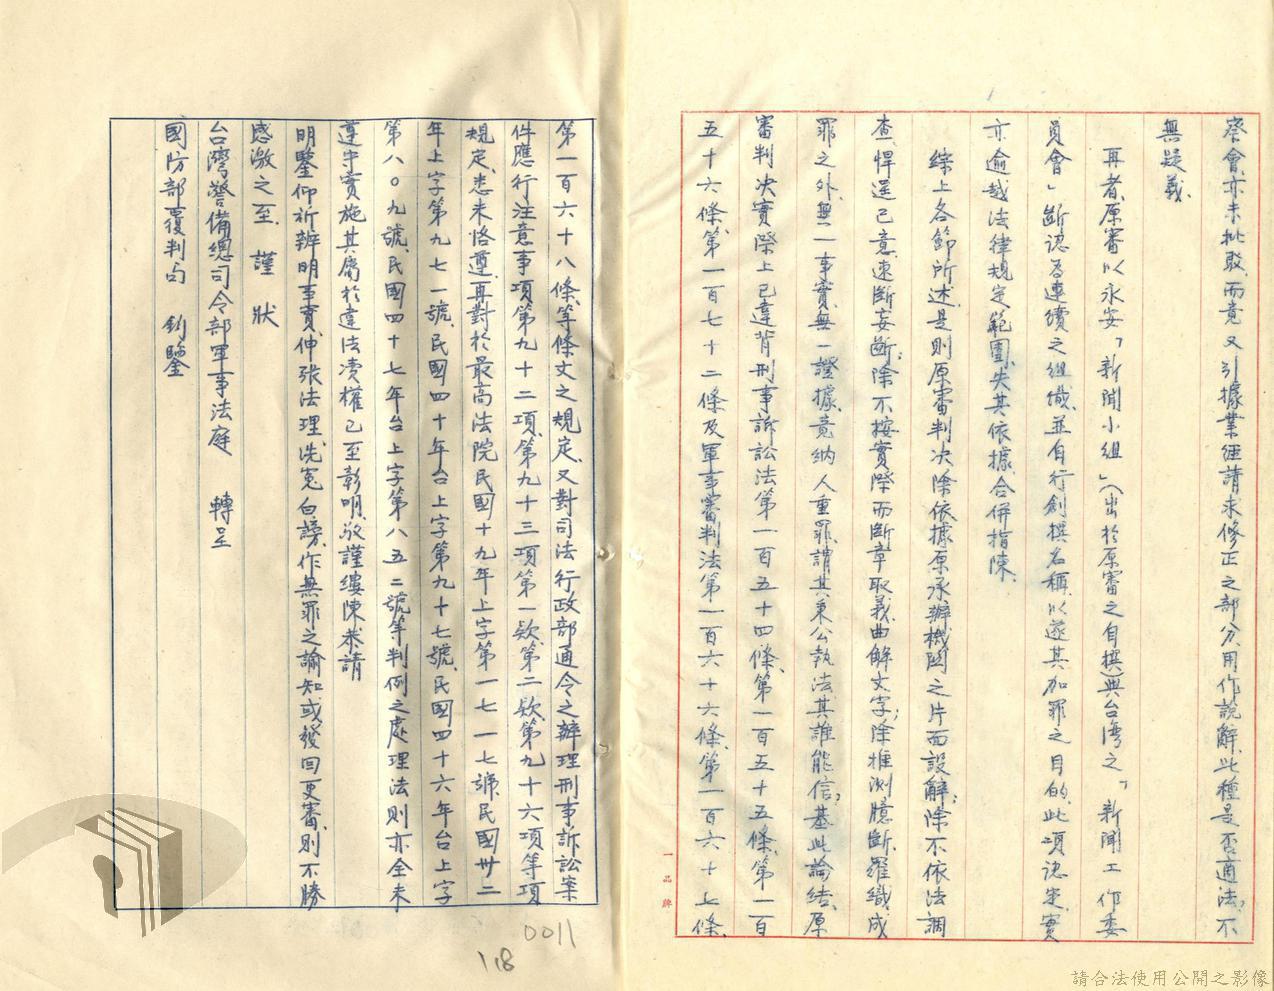 察會亦未批駁、而竟又引據業經請求修正之部分、用作說解、此種是否適法、不
無疑義、
再者、原審以永安「新聞小組」(出於原審之自撰)與台灣之「新聞工作委
員會」斷認為連續之組織、並自行創撰名稱、以遂其加罪之目的、此項認定、實
亦逾越法律規定範圍、失其依據、合併指陳、
綜上各節所述、是則原審判決除依據原承辦機關之片面設解；除不依法調
查、悍逞己意、速斷妄斷；除不按實際而斷章取義、曲解文字；除推測臆斷、羅織成
罪之外、無一事實、無一證據、竟納人重罪、謂其秉公執法、其誰能信；基此論結、原
審判決實際上已違背刑事訴訟法第一百五十四條、第一百五十五條、第一百
五十六條、第一百七十二條及軍事審判法第一百六十六條、第一百六十七條、
第一百六十八條、等條文之規定、又對司法行政部通令之辦理刑事訴訟案
件應行注意事項第九十二項、第九十三項第一欵、第二欵、第九十六項等項
規定、悉未恪遵、再對於最高法院民國十九年上字第一七一七號、民國卅二
年上字第九七一號、民國四十年台上字第九十七號、民國四十六年台上字
第八〇九號、民國四十七年台上字第八五二號等判例之處理法則亦全未
遵守實施、其屬於違法瀆權已至彰明、敬謹縷陳、恭請
明鑒、仰祈辨明事實、伸張法理、洗冤白謗、作無罪之諭知、或發回更審、則不勝
感激之至、謹狀
台灣警備總司令部軍事法庭 轉呈
國防部覆判局 鈞鑒
一品牌
0011
118
請合法使用公開之影像